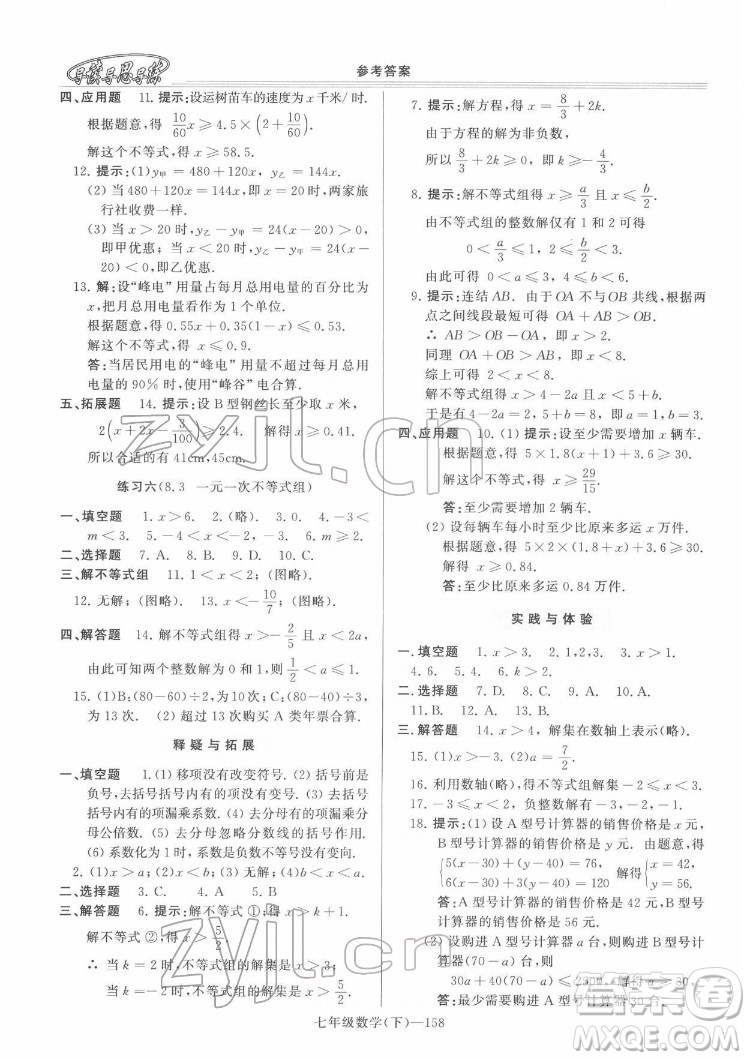 导读导思导练
参考答案
四、应用题 11. 提示:设运树苗车的速度为 x 千米/时.
根据题意,得 10/60 x ≥ 4.5×(2+10/60).
解这个不等式,得 x ≥ 58.5.
12. 提示:(1) y甲 = 480+120x, y乙 = 144x.
(2) 当 480+120x = 144x, 即 x = 20 时,两旅
行社收费一样.
(3) 当 x > 20 时, y乙 - y甲 = 24(x-
20) > 0,即甲优惠;当 x < 20 时, y乙 - y甲 = 24(x-
20) < 0,即乙优惠.
13. 解:设“峰电”用量占每月总用电量的百分比为
x,把月总用电量看作为 1 个单位.
根据题意,得 0.55x+0.35(1-x) < 0.53.
解这个不等式,得 x < 0.9.
答:当居民用电的“峰电”用量小于每月总用
电量的 90% 时,使用“峰谷”电合算.
五、拓展题 14. 提示:设 B 型钢丝长至少取 x 米,
2(x+2x-3/100) ≥ 2.4. 解得 x ≥ 0.41.
所以合适的有 41cm,45cm.
练习六(8.3 一元一次不等式组)
一、填空题 1. x > 6. 2. (略). 3. 0. 4. -3 <
m < 3. 5. -4 < x < -2. 6. -3.
二、选择题 7. A. 8. B. 9. D. 10. C.
三、解不等式组 11. 1 < x < 4;(图略).
12. 无解;(图略). 13. x < -10/7;(图略).
四、解答题 14. 解不等式组得 x > -2/5 且 x < 2a,
由此可知两个整数解为 0 和 1,得 1/2 < a ≤ 1.
15. (1) B:(80-60)÷2,为 10 次; C:(80-40)÷3,
为 13 次. (2) 超过 13 次购买 A 类年票合算.
释疑与拓展
一、填空题 1. (1) 移项没有改变符号. (2) 括号前是
负号,去括号后的项没有变号. (3) 去括号后
括号内的项漏乘系数. (4) 去分母的项漏乘分
母公倍数. (5) 去分母忽略分数线的括号作用.
(6) 系数化为 1 时,系数是负数不等号没有变向.
2. (1) x > a; (2) x < b; (3) 无解; (4) b < x < a.
二、选择题 3. C. 4. A. 5. B.
三、解答题 6. 提示:解不等式 ①,得 x > 3;
解不等式 ②,得 x > 5/k.
∴ 当 k = 2 时,不等式组的解集是 x > 3;
当 k = -2 时,不等式组的解集是 x > 5/2.
7. 提示:解方程,得 x = 8/3 + 2k.
由于方程的解为非负数,
所以 8/3 + 2k ≥ 0,得 k ≥ -4/3.
8. 提示:解不等式组得 x ≥ a/3 且 x ≤ b/2.
由不等式组的整数解仅有 1 和 2 可得
0 < a/3 ≤ 1, 2 ≤ b/2 < 3.
由此可得 0 < a ≤ 3, 4 ≤ b < 6.
9. 提示:连结 AB. 由于 OA 不与 OB 共线,根据两
点之间线段最短,得 OA+AB > OB.
∴ AB > OB-OA,即 x > 2.
同理 OA+OB > AB,得 x < 6.
综上可得 2 < x < 6.
解不等式组得 x > 4-2a 且 x < 5+b.
于是有 4-2a = 2, 5+b = 6,得 a = 1, b = 1.
四、应用题 10. (1) 提示:设至少需要增加 x 辆车.
解得 x ≥ 29/15.
答:至少需要增加 2 辆汽车.
(2) 设每辆车每小时至少比原来多运 x 万件.
根据题意,得 5×2×(1.8+x)+3.6≥30.
解得 x ≥ 0.84.
答:至少比原来多运 0.84 万件.
实践与体验
一、填空题 1. x > 3. 2. 1,2,3. 3. x > 1.
4. 6. 5. x > 4. 6. 15.
二、选择题 7. D. 8. C. 9. B. 10. A.
11. B. 12. A. 13. B.
三、解答题 14. x > 4,解集在数轴上表示(略).
15. (1) x > -3. (2) a = 7/2.
16. 利用数轴(略),得不等式组无解.
17. -3 ≤ x < 2,负整数解为 -3,-2,-1.
18. 提示:(1) 设 A 型号计算器的销售价格是 x 元,
B 型号计算器的销售价格是 y 元. 由题意得
{5(x-30)+(y-40) = 76,
6(x-30)+3(y-40) = 120, 解得 {x = 42,
y = 56.
答:A 型号计算器的销售价格是 42 元, B 型号
计算器的销售价格是 56 元.
(2) 设购进 A 型号计算器 a 台,则购进 B 型号计
算器(70-a)台,则
30a+40(70-a) ≤ 2500. 解得 a ≥ 30.
答:最少需购进 A 型号计算器 30 台.
七年级数学(下)—158
zyjl.cn
zyjl.cn
答案卷